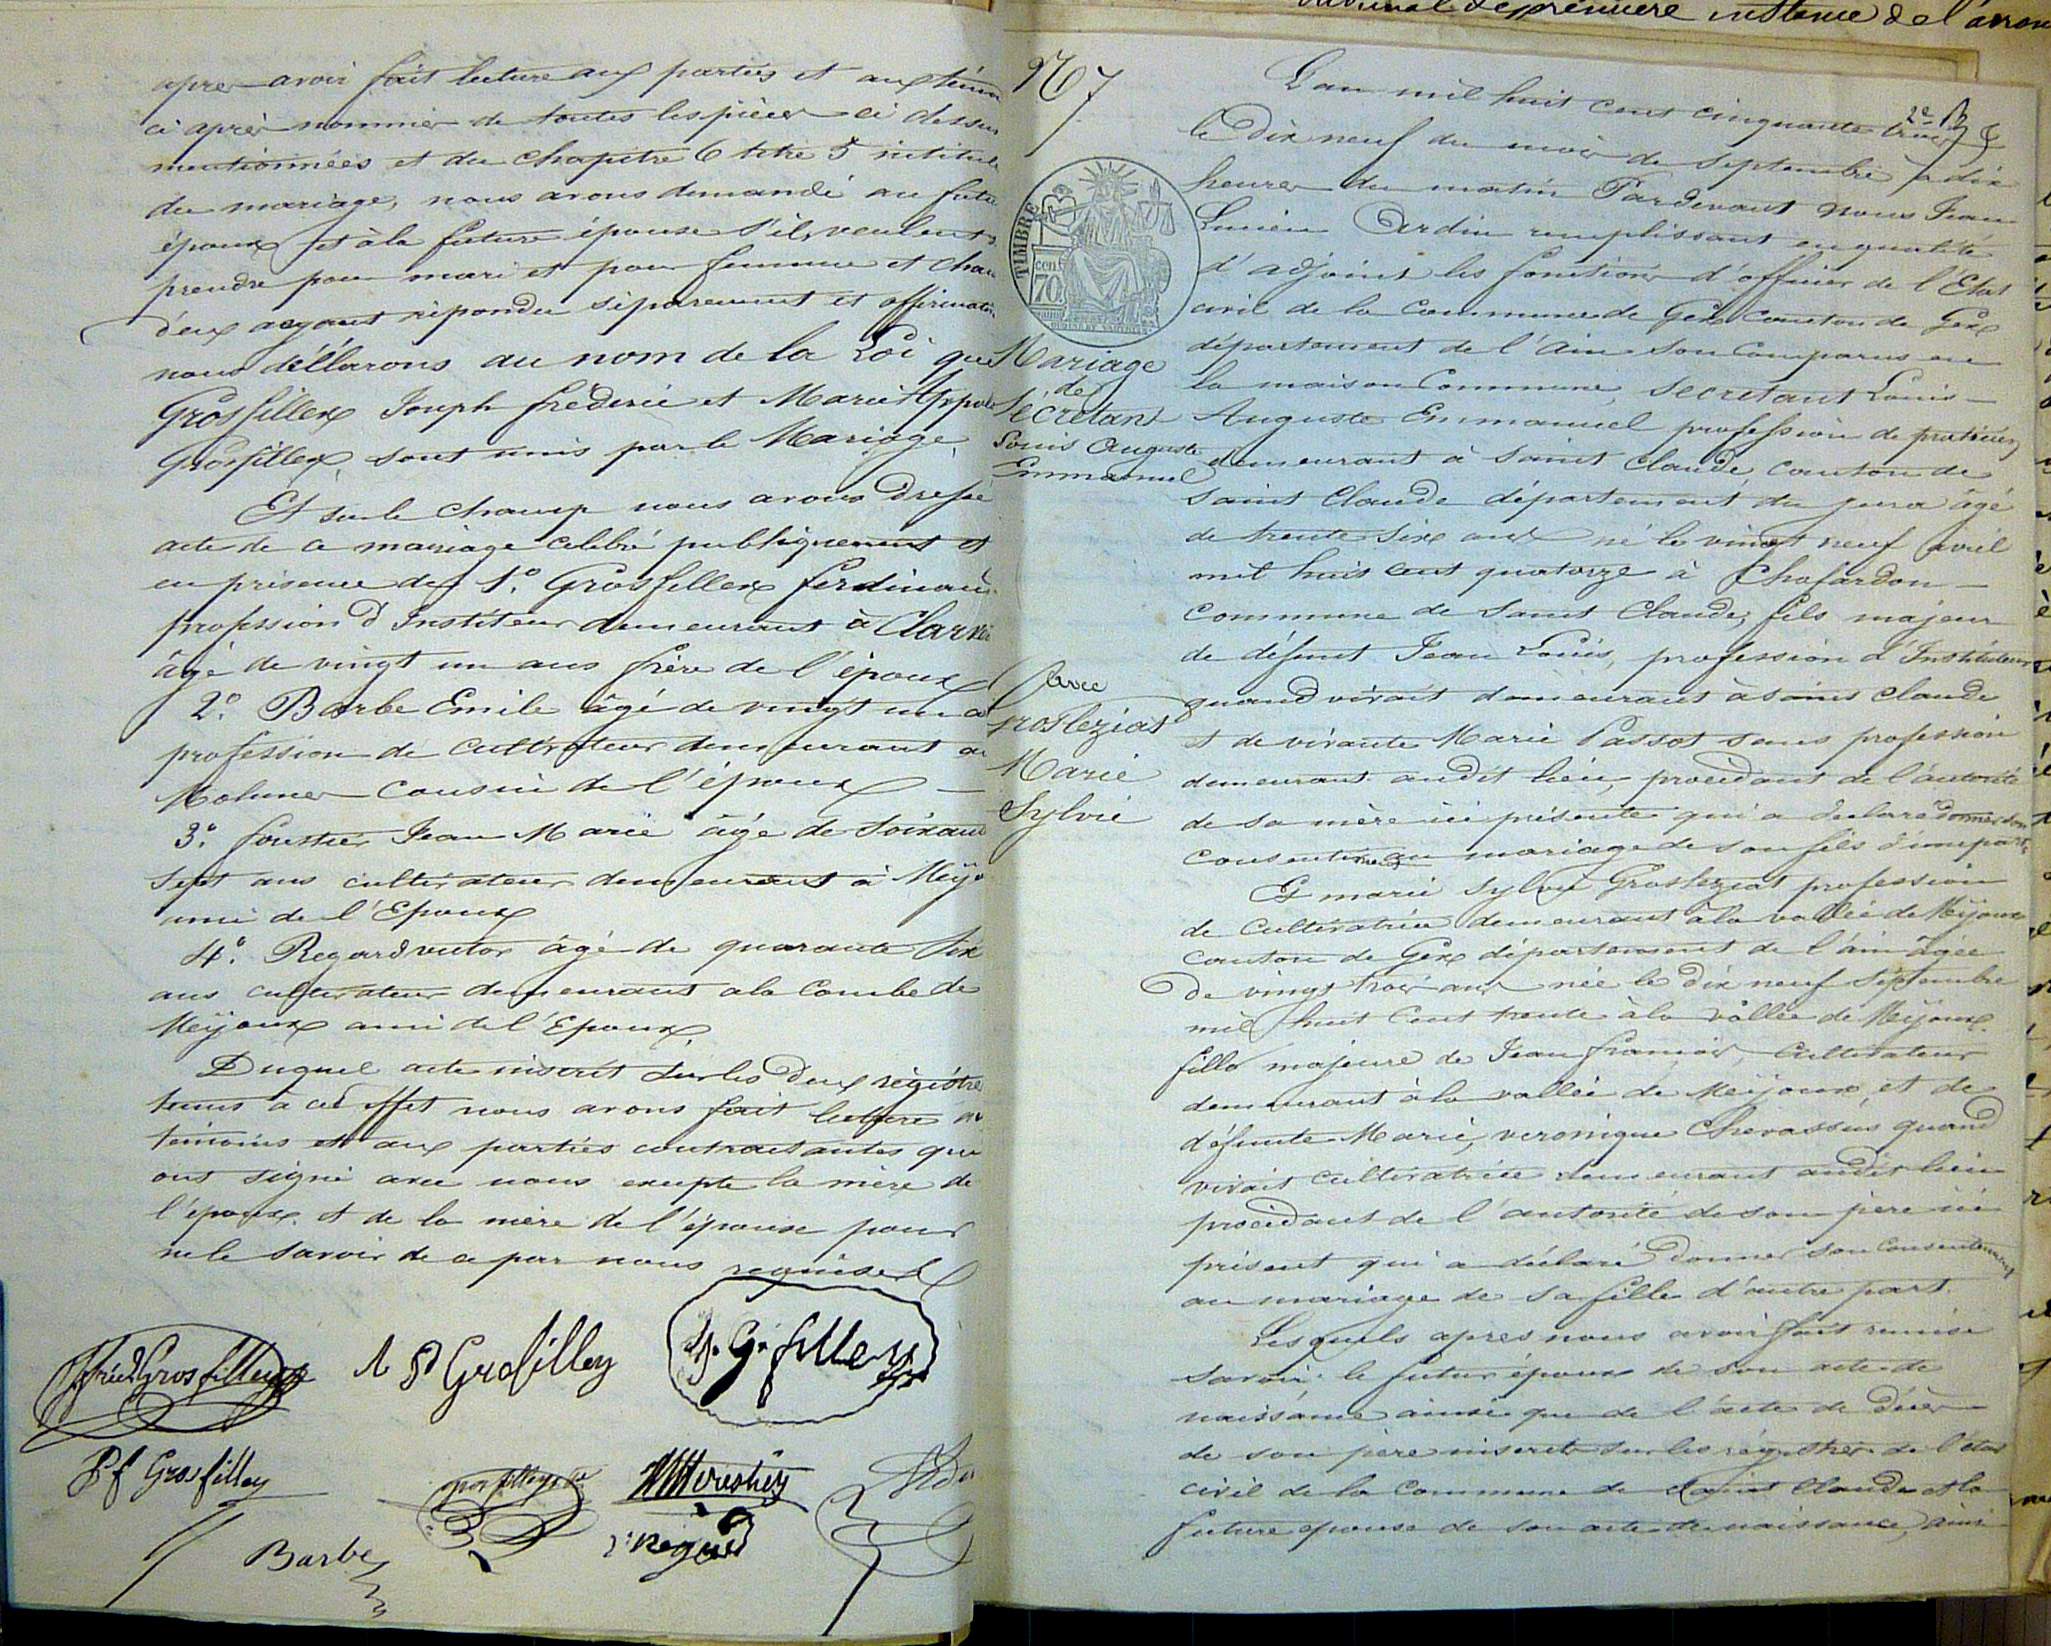 apres avoir fait lecture aux parties et aux témoi
ci après nommés de toutes les pièces ci dessus
mentionnées et du chapitre 6 titre 5 intitulé
du mariage, nous avons demandé au futur
époux et à la future épouse s'ils veulent se
prendre pour mari et pour femme et chac
d'eux ayant répondu séparement et affirmativ
nous déclarons au nom de la Loi que
Grosfillex Joseph fréderic et Marie
Grosfillex, sont unis par le Mariage,
Et sur le champ nous avons dressé
acte de ce mariage célébré publiquement et
en présence de 1.° Grosfillex ferdinan
profession d'Instituteur demeurant à
âgé de vingt un ans frère de l'époux
2.° Barbe Emile âgé de vingt un a
profession de cultivateur demeurant au
cousin de l'époux
3.° Jean Marie âgé de soixant
sept ans cultivateur demeurant à Mijo
ami de l'Epoux
4.° Regard victor âgé de quarante six
ans cultivateur demeurant a la Combe de
Mijoux ami de l'Epoux,
Duquel acte inscrit sur les deux régistre
tenus à cet effet nous avons fait lecture au
témoins et aux parties contractantes qui
ont signé avec nous excepté la mère de
l'époux et de la mère de l'épouse pour
ne le savoir de ce par nous requises
fréd Grosfillex
Grosfilley
G. filley
P f Grosfilley
grosfilley
Regard
Barbe
tribunal de première instance de l'arron
967
2e
L'an mil huit cent cinquante trois &
le Dix neuf du mois de Septembre à dix
heures du matin Pardevant nous Jean
Lucien Ardin remplissant en qualité
d'adjoint les fonctions d'officier de l'Etat
civil de la Commune de Gex canton de Gex
département de l'Ain son comparus en
la maison Commune, Secretant Louis
Auguste Emmanuel profession de praticien
demeurant à Saint Claude, canton de
Saint Claude département du jura âgé
de trente six ans né le vingt neuf avril
mil huit cent quatorze à Chafardon
commune de Saint Claude, fils majeur
de défunt Jean Louis, profession d'Instituteur
quand vivait demeurant à saint Claude
et de vivante Marie Passot sans profession
demeurant audit lieu, procédant de l'autorité
de sa mère ici présente qui a déclaré donner son
consentement au mariage de son fils d'une part,
Et marie Sylvie Groslezias profession
de Cultivatrice demeurant à la vallée de Mijoux
canton de Gex département de l'ain âgée
de vingt trois ans née le dix neuf Septembre
mil huit cent trente à la vallée de Mijoux
fille majeure de Jean françois, Cultivateur
demeurant à la vallée de Mijoux, et de
défunte Marie, veronique Chevassus quand
vivait cultivatrice demeurant audit lieu
procédant de l'autorité de son père ici
présent qui a déclaré donner son consentement
au mariage de sa fille d'autre part.
Lesquels apres nous avoir fait remise
savoir: le futur époux de son acte de
naissance ainsi que de l'acte de décès
de son père inscrit sur les régistres de l'état
civil de la Commune de Saint Claude et la
future epouse de son acte de naissance, ainsi
TIMBRE
cent.
70
Mariage
de
Sécretant
Louis Auguste
Emmanuel
Avec
Groslezias
Marie
Sylvie